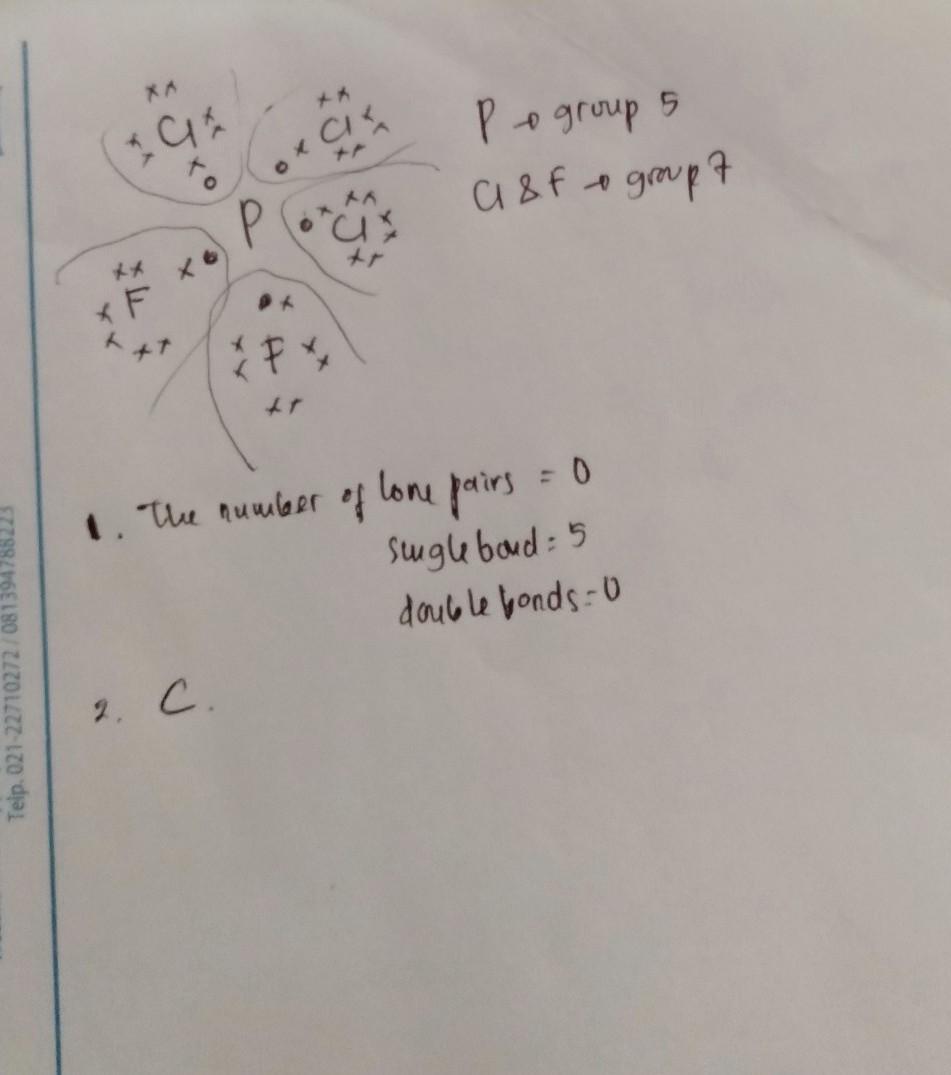 Cl
Cl
P
Cl
F
F
P → group 5
Cl & F → group 7
1. The number of lone pairs = 0
single bond = 5
double bonds = 0
2. C.
Telp. 021-22710272 / 081394788223